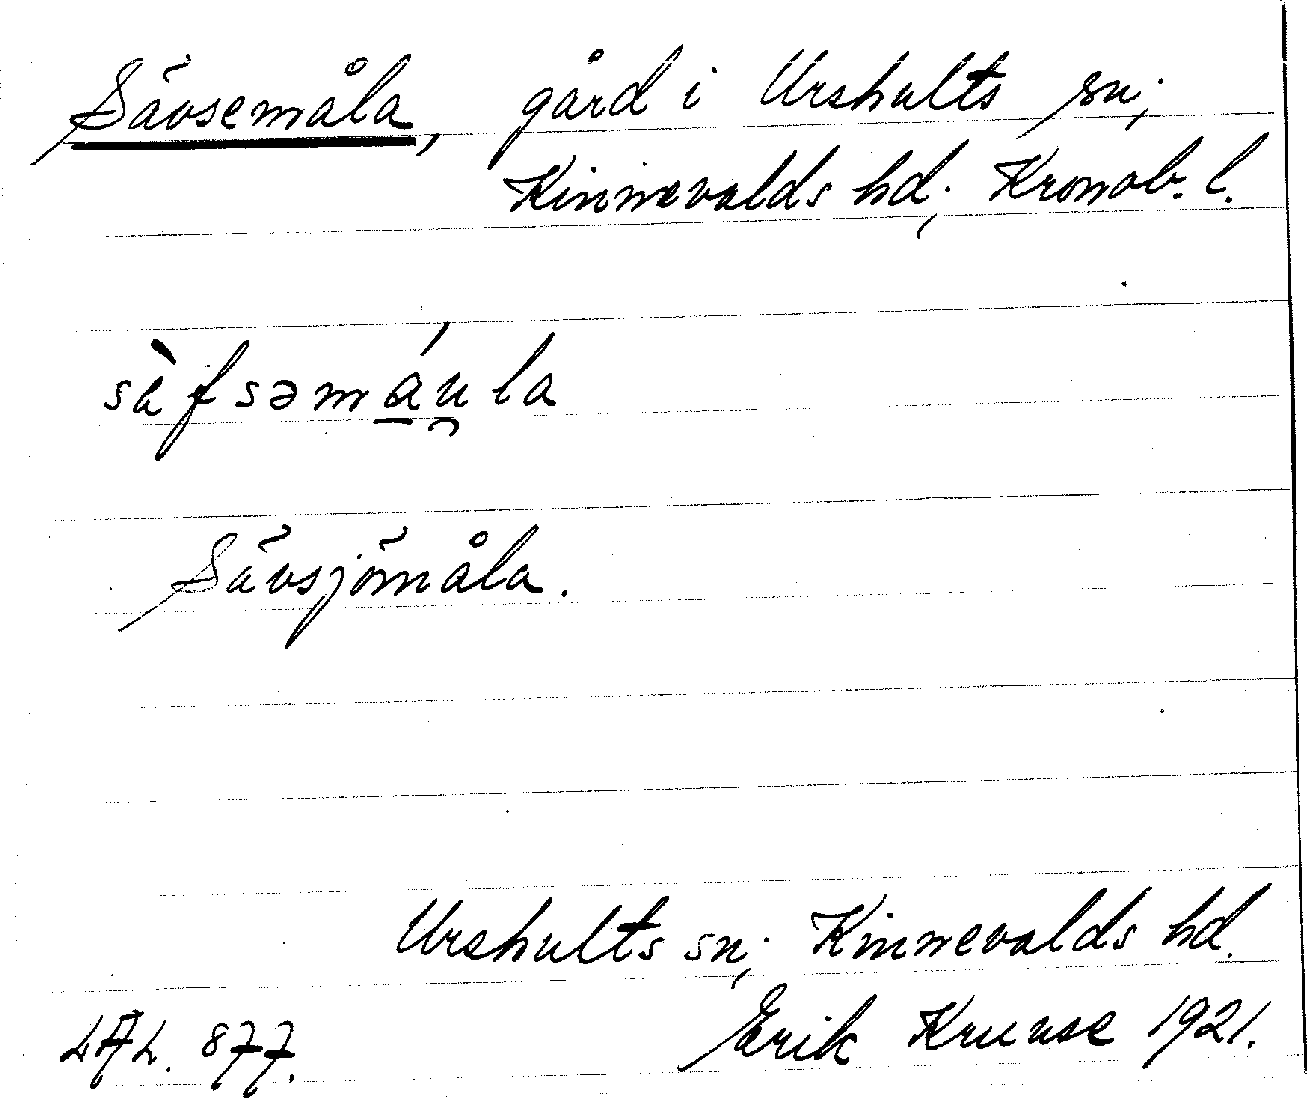 Sävsemåla, gård i Urshults sn;
Kinnevalds hd; Kronob. l.
sæ̀fsəmáu̯la
Sävsjömåla.
Urshults sn; Kinnevalds hd.
LAL. 877. Erik Kruuse 1921.